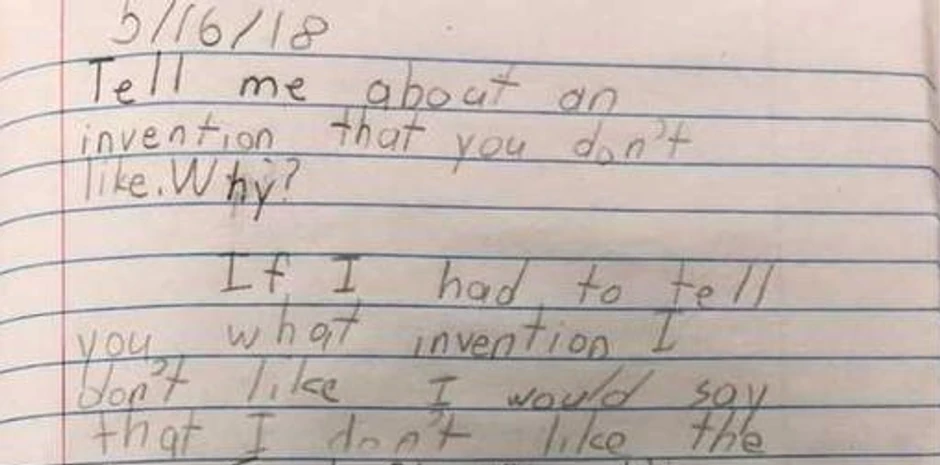 5/16/18
Tell me about an
invention that you don't
like. Why?
If I had to tell
you what invention I
don't like I would say
that I don't like the